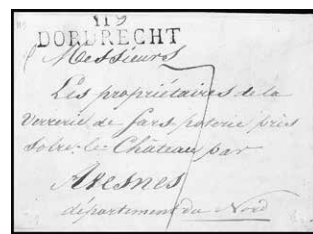 119
DORDRECHT
Messieurs
Les propriétaires de la
Verrerie de Sars poterie près
Solre-le-Château par
Avesnes
département du Nord